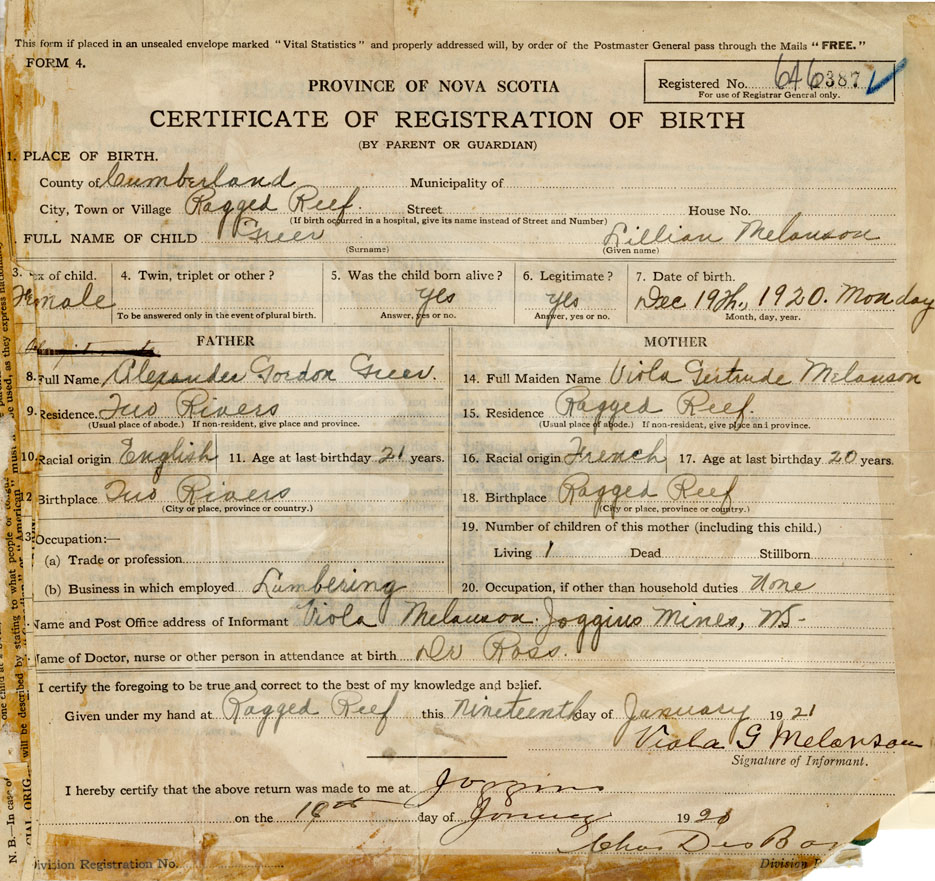 This form if placed in an unsealed envelope marked "Vital Statistics" and properly addressed will, by order of the Postmaster General pass through the Mails "FREE."
FORM 4.
Registered No. 646387
For use of Registrar General only.
PROVINCE OF NOVA SCOTIA
CERTIFICATE OF REGISTRATION OF BIRTH
(BY PARENT OR GUARDIAN)
1. PLACE OF BIRTH.
County of Cumberland Municipality of
City, Town or Village Ragged Reef. Street House No.
(If birth occurred in a hospital, give its name instead of Street and Number)
FULL NAME OF CHILD Greer Lillian Melanson
(Surname) (Given name)
3. Sex of child. 4. Twin, triplet or other? 5. Was the child born alive? 6. Legitimate? 7. Date of birth.
Female yes yes Dec 19th, 1920. Monday
To be answered only in the event of plural birth. Answer, yes or no. Answer, yes or no. Month, day, year.
FATHER MOTHER
8. Full Name Alexander Gordon Greer. 14. Full Maiden Name Viola Gertrude Melanson
9. Residence. Two Rivers 15. Residence Ragged Reef.
(Usual place of abode.) If non-resident, give place and province. (Usual place of abode.) If non-resident, give place and province.
10. Racial origin English 11. Age at last birthday 21 years. 16. Racial origin French 17. Age at last birthday 20 years.
12 Birthplace Two Rivers 18. Birthplace Ragged Reef
(City or place, province or country.) (City or place, province or country.)
13. Occupation:— 19. Number of children of this mother (including this child.)
(a) Trade or profession Living 1 Dead Stillborn
(b) Business in which employed Lumbering 20. Occupation, if other than household duties None
Name and Post Office address of Informant Viola Melanson. Joggins Mines, NS-
Name of Doctor, nurse or other person in attendance at birth Dr Ross.
I certify the foregoing to be true and correct to the best of my knowledge and belief.
Given under my hand at Ragged Reef this Nineteenth day of January 1921
Viola G Melanson
Signature of Informant.
I hereby certify that the above return was made to me at Joggins
on the 19th day of January 1920
Chas Des Bar
Division Registration No. Division R
N. B.—In case of
one child at a
will be described by stating to what people or
be used, as they express nationality